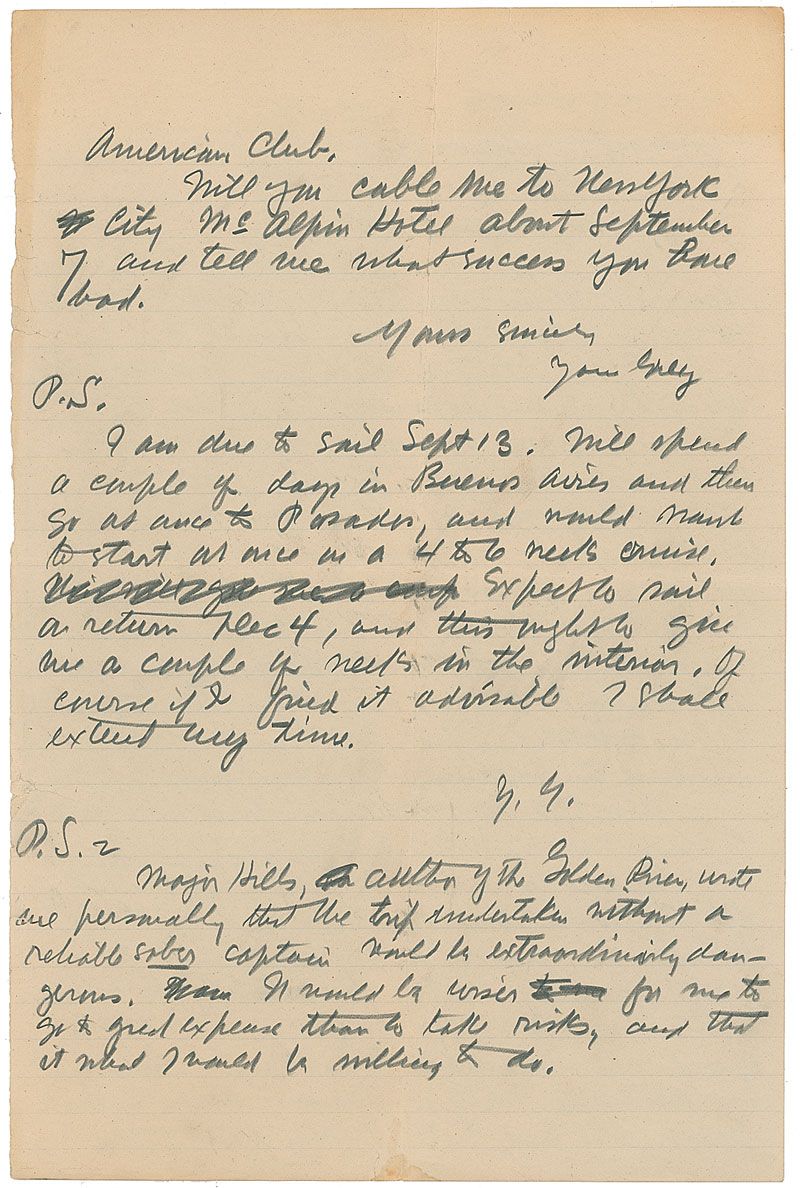 American Club.
Will you cable me to New York
City McAlpin Hotel about September
7 and tell me what success you have
had.
Yours sincerely
Zane Grey
P.S.
I am due to sail Sept 13. Will spend
a couple of days in Buenos Aires and then
go at once to Posados, and would want
to start at once on a 4 to 6 weeks cruise.
Expect to sail
on return Dec 4, and this ought to give
me a couple of weeks in the interior. Of
course if I find it advisable I shall
extend my time.
Z. G.
P.S. 2
Major Hills, author of the Golden River, wrote
me personally that the trip undertaken without a
reliable sober captain would be extraordinarily dan-
gerous. It would be wiser for me to
go to great expense than to take risks, and that
it what I would be willing to do.